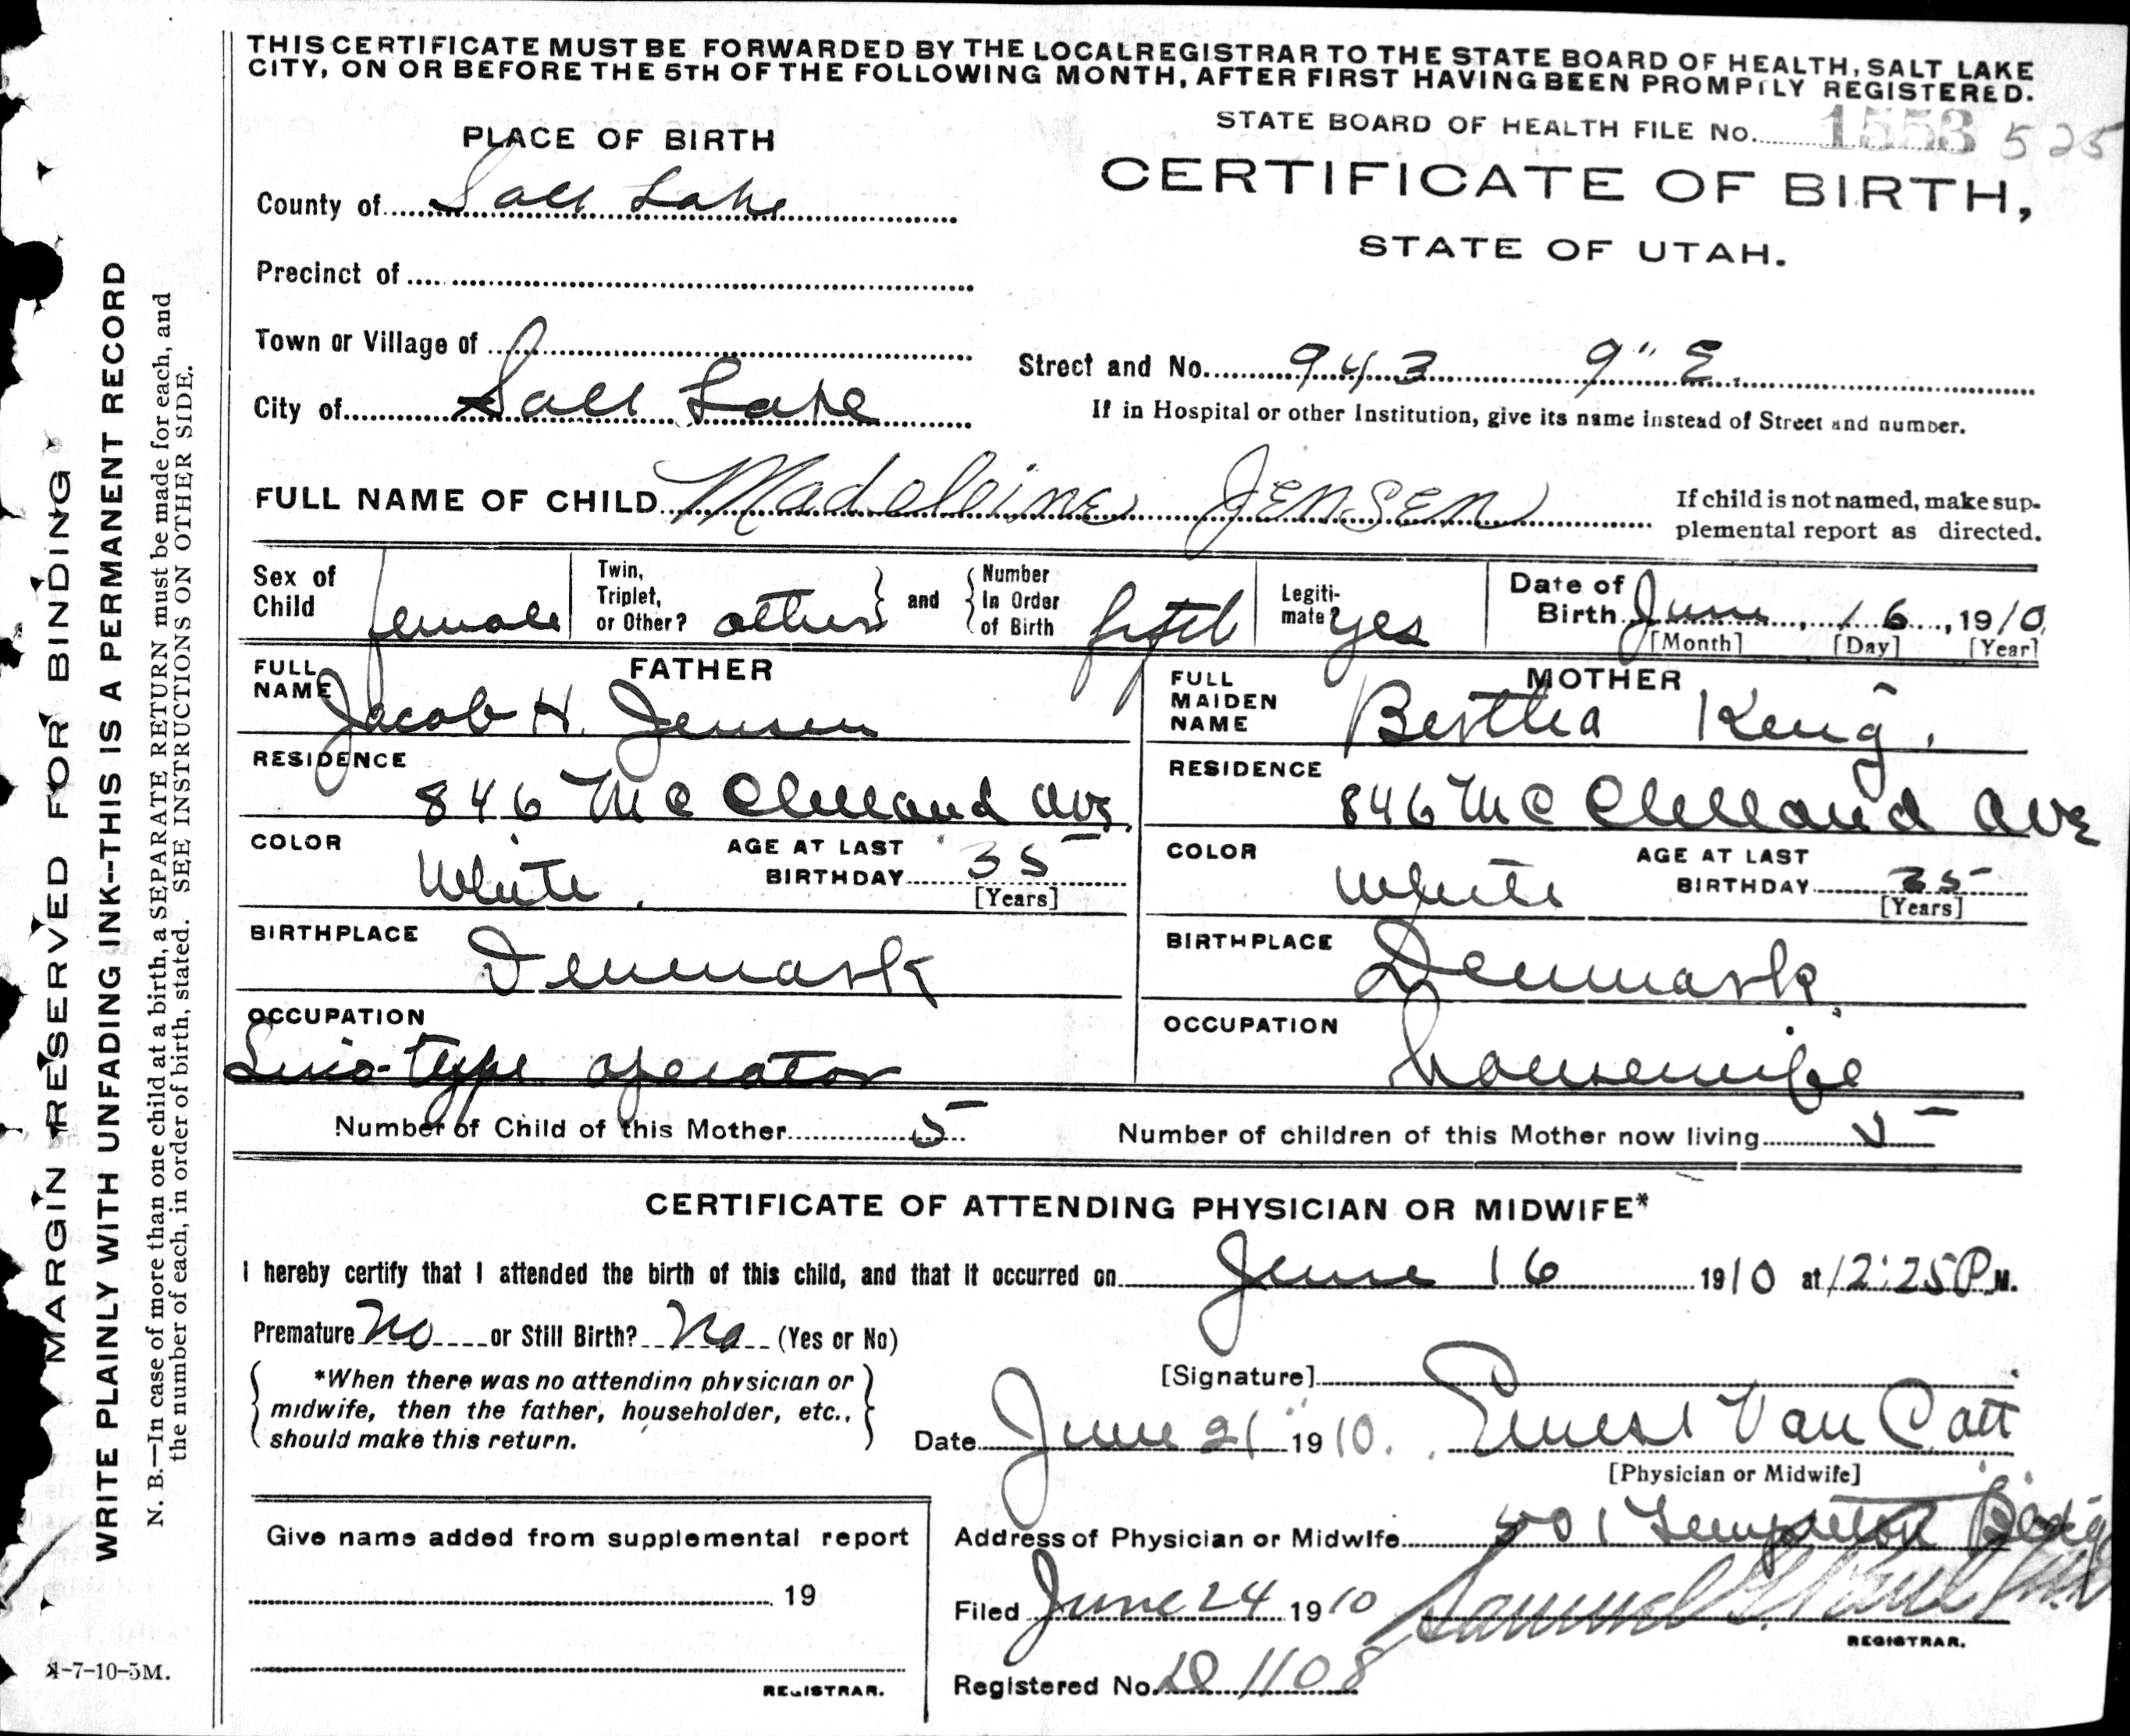 THIS CERTIFICATE MUST BE FORWARDED BY THE LOCAL REGISTRAR TO THE STATE BOARD OF HEALTH, SALT LAKE
CITY, ON OR BEFORE THE 5TH OF THE FOLLOWING MONTH, AFTER FIRST HAVING BEEN PROMPTLY REGISTERED.
STATE BOARD OF HEALTH FILE No. 1553 525
PLACE OF BIRTH
CERTIFICATE OF BIRTH,
STATE OF UTAH.
County of Salt Lake
Precinct of
Town or Village of
Street and No. 943 9" E.
City of Salt Lake
If in Hospital or other Institution, give its name instead of Street and number.
FULL NAME OF CHILD Madeleine Jensen
If child is not named, make sup-
plemental report as directed.
Sex of
Child female
Twin,
Triplet,
or Other? other
and
Number
In Order
of Birth fifth
Legiti-
mate? yes
Date of
Birth June, 16, 1910
[Month] [Day] [Year]
FATHER
FULL
NAME Jacob H. Jensen
MOTHER
FULL
MAIDEN
NAME Bertha
RESIDENCE
846 McClelland Ave.
RESIDENCE
846 McClelland Ave
COLOR White.
AGE AT LAST
BIRTHDAY 35
[Years]
COLOR White
AGE AT LAST
BIRTHDAY 35
[Years]
BIRTHPLACE Denmark
BIRTHPLACE Denmark
OCCUPATION
Lino-type operator
OCCUPATION
housewife
Number of Child of this Mother 5
Number of children of this Mother now living 5
CERTIFICATE OF ATTENDING PHYSICIAN OR MIDWIFE*
I hereby certify that I attended the birth of this child, and that it occurred on June 16 1910 at 12:25 P M.
Premature No or Still Birth? No (Yes or No)
*When there was no attending physician or
midwife, then the father, householder, etc.,
should make this return.
[Signature]
Date June 21 1910. Ernest Van Cott
[Physician or Midwife]
Give name added from supplemental report
19
REGISTRAR.
Address of Physician or Midwife 501 Templeton Bldg
Filed June 24 1910 Samuel G. Paul M.D.
REGISTRAR.
Registered No. 1108
MARGIN RESERVED FOR BINDING
WRITE PLAINLY WITH UNFADING INK--THIS IS A PERMANENT RECORD
N. B.—In case of more than one child at a birth, a SEPARATE RETURN must be made for each, and
the number of each, in order of birth, stated. SEE INSTRUCTIONS ON OTHER SIDE.
4-7-10-5M.